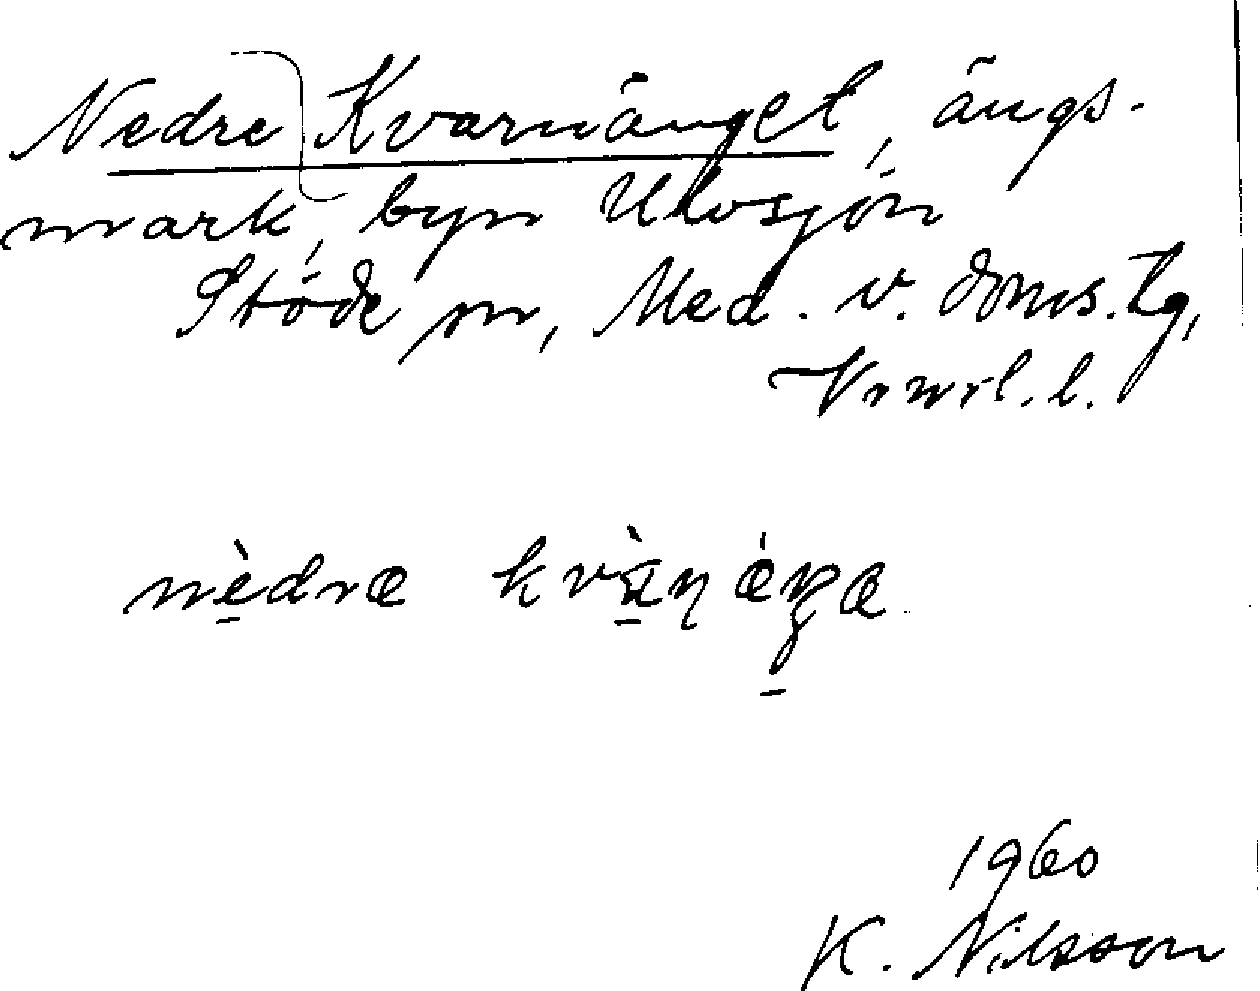 Nedre Kvarnänget, ängs-
mark, byn Ulvsjön
Stöde sn, Med. v. doms. tg,
Vrnrl. l.
nèdræ kvàn̨ǽŋæ
1960
K. Nilsson